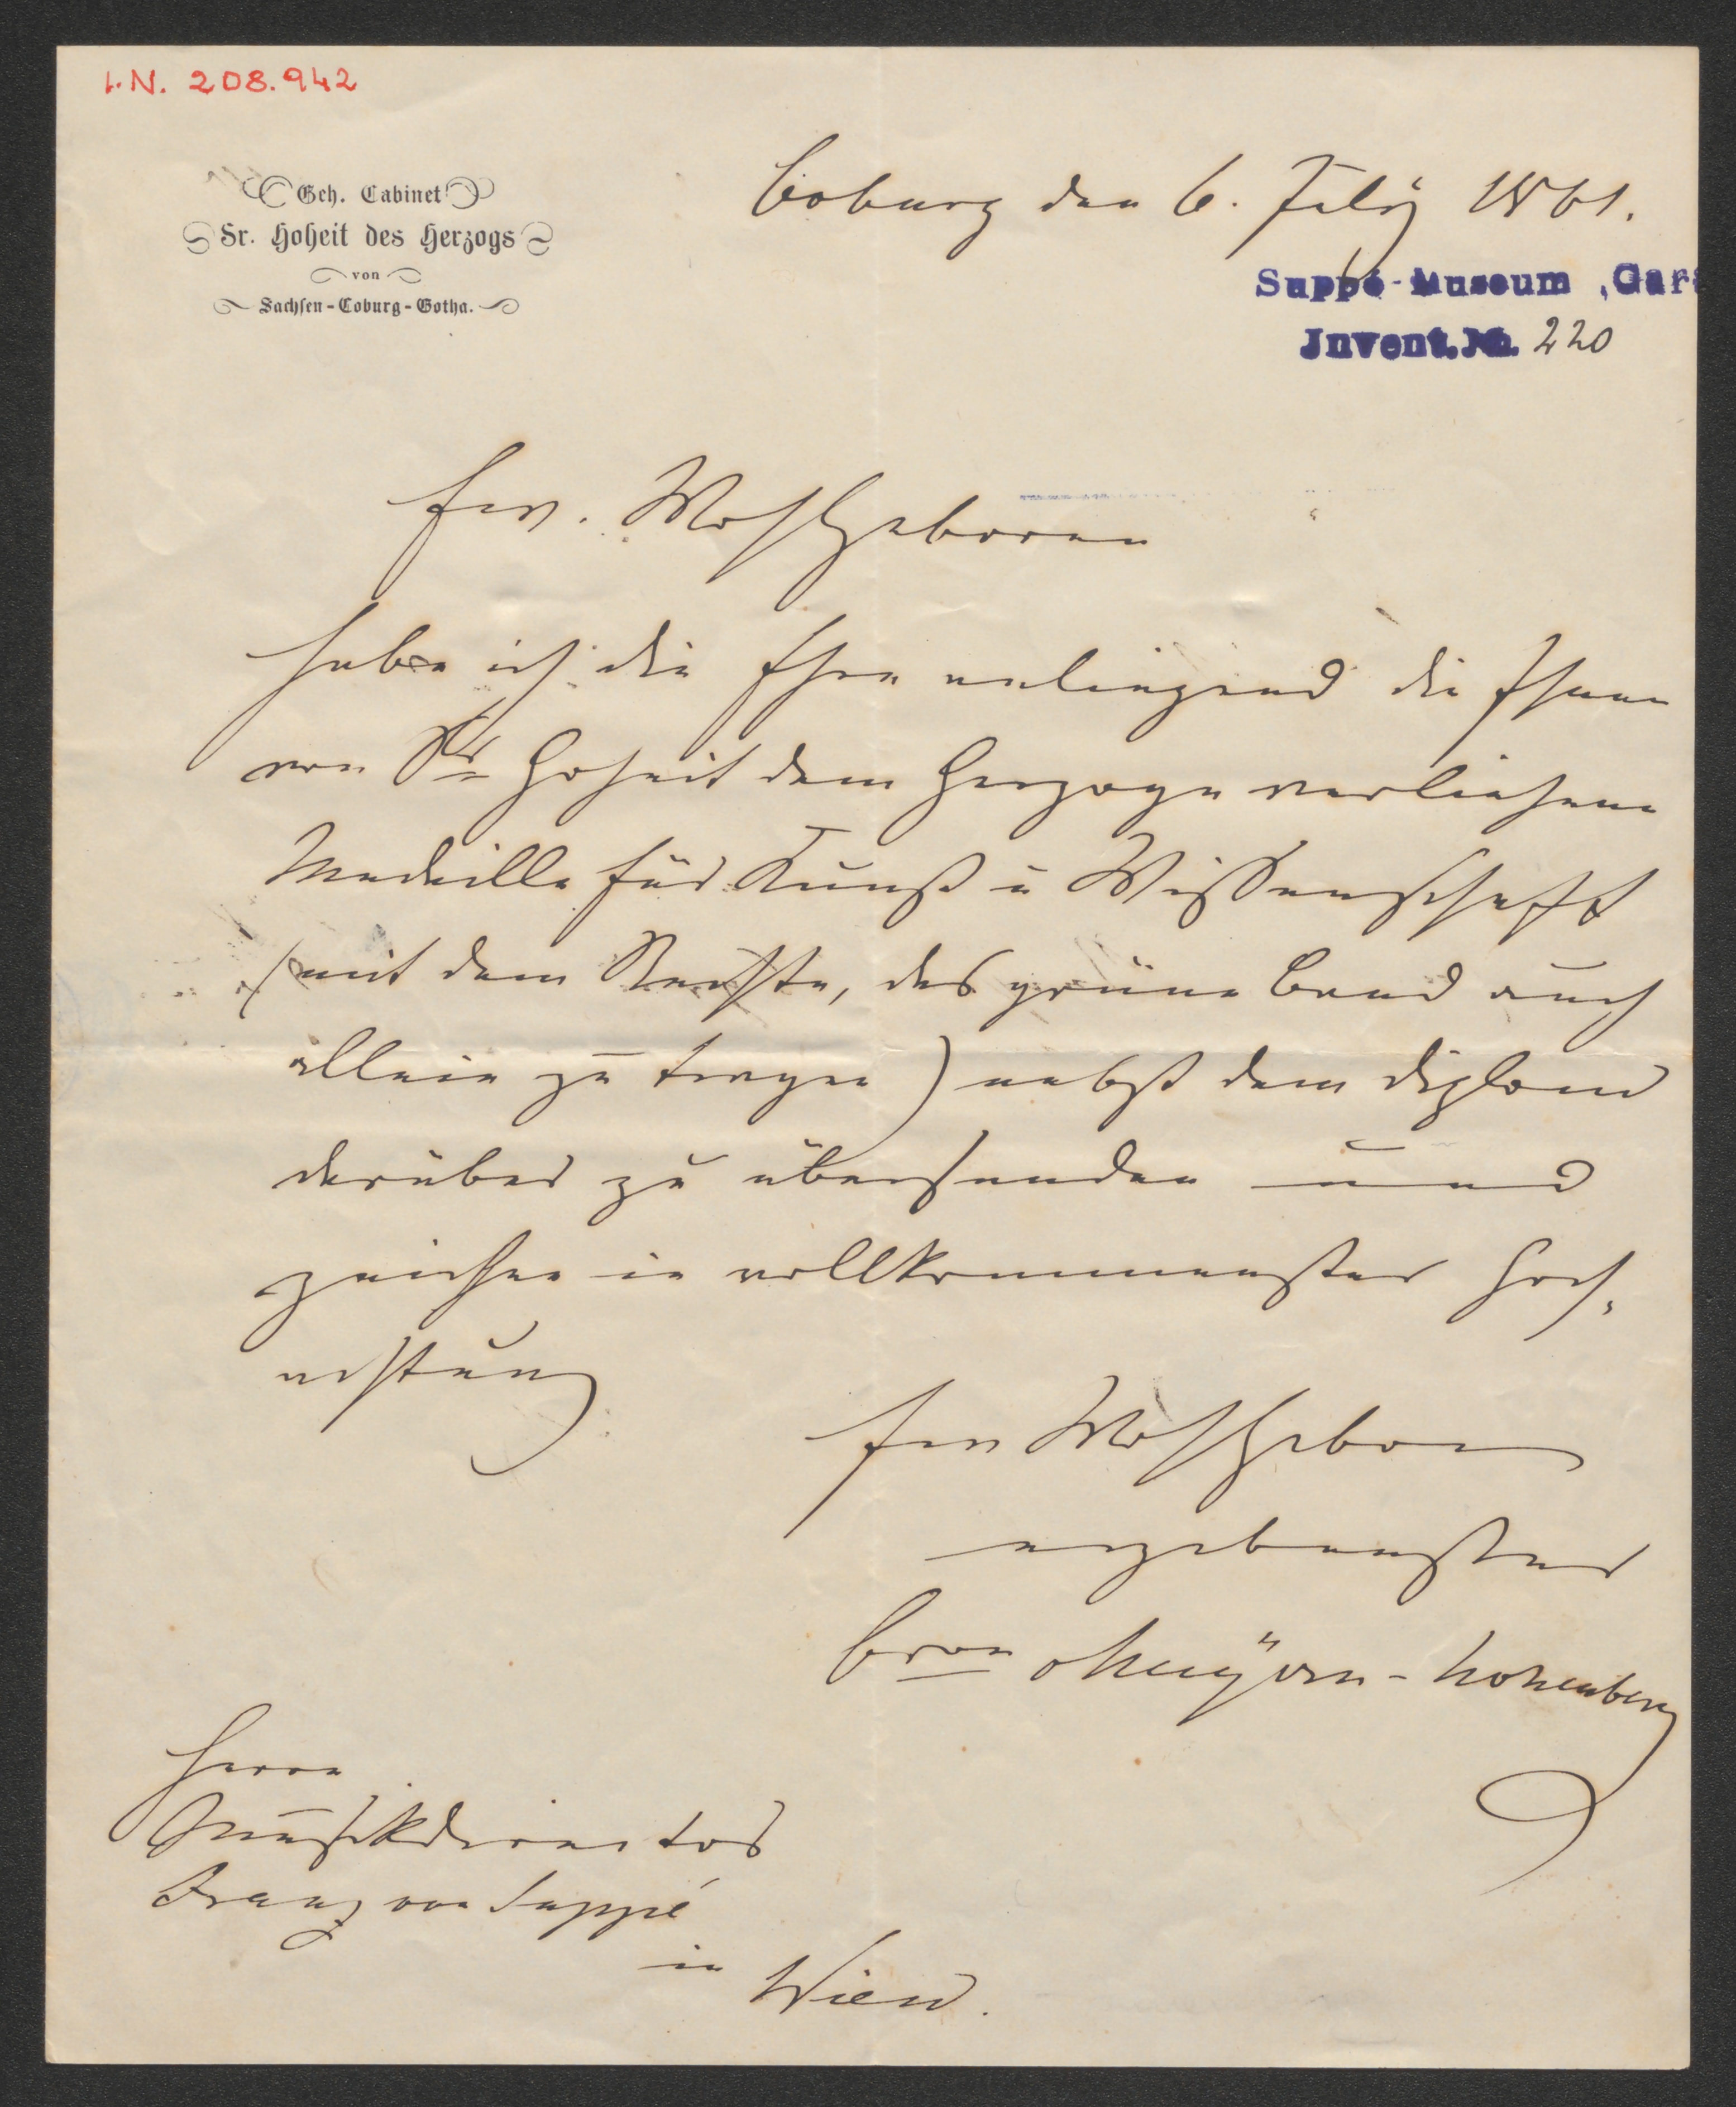 I.N. 208.942
Geh. Cabinet
Sr. Hoheit des Herzogs
von
Sachsen-Coburg-Gotha.
Coburg den 6. July 1861.
Suppé-Museum, Gars
Invent.No. 220
Ew. Wohlgeboren
habe ich die Ehre anliegend die Ihnen
von Sr Hoheit dem Herzoge verliehene
Medaille für Kunst u Wissenschaft
(mit dem Rechte, das grüne Band auch
allein zu tragen) nebst dem Diplom
darüber zu übersenden und
zeichne in vollkommenster Hoch-
achtung
Ew Wohlgeboren
ergebenster
Bron Meyern-Hohenberg
Herrn
Musikdirector
Franz von Suppé
in Wien.